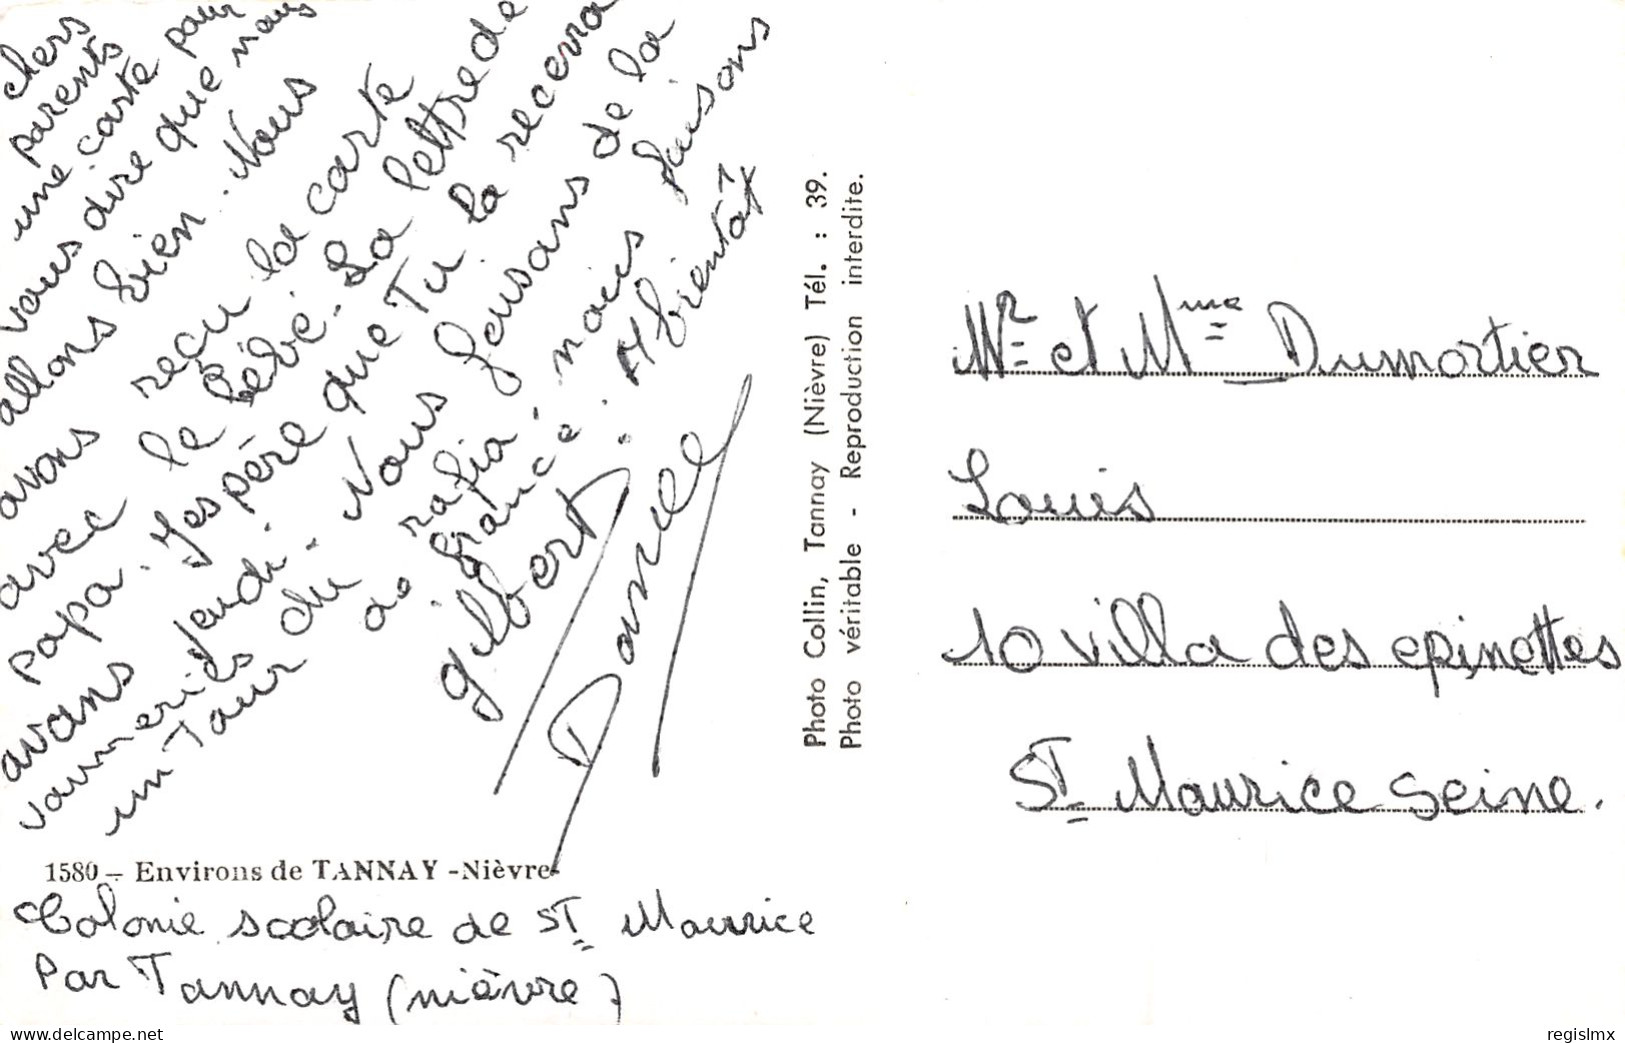 chers
parents
une carte pour
vous dire que nous
allons bien. Nous
avons reçu la carte
avec le bébé. La lettre de
papa. J'espère que Tu la recevra
avans jeudi. Nous fesans de la
vanneries du rafia, nous faisons
un Tour de France. A bientôt
gilbert
Daniel
1580 - Environs de TANNAY - Nièvre
Colonie scolaire de ST Maurice
Par Tannay (nièvre)
Photo Collin, Tannay (Nièvre) Tél. : 39.
Photo véritable - Reproduction interdite.
Mr et Mme Dumortier
Louis
10 villa des epinettes
ST Maurice Seine.
regislmx
www.delcampe.net